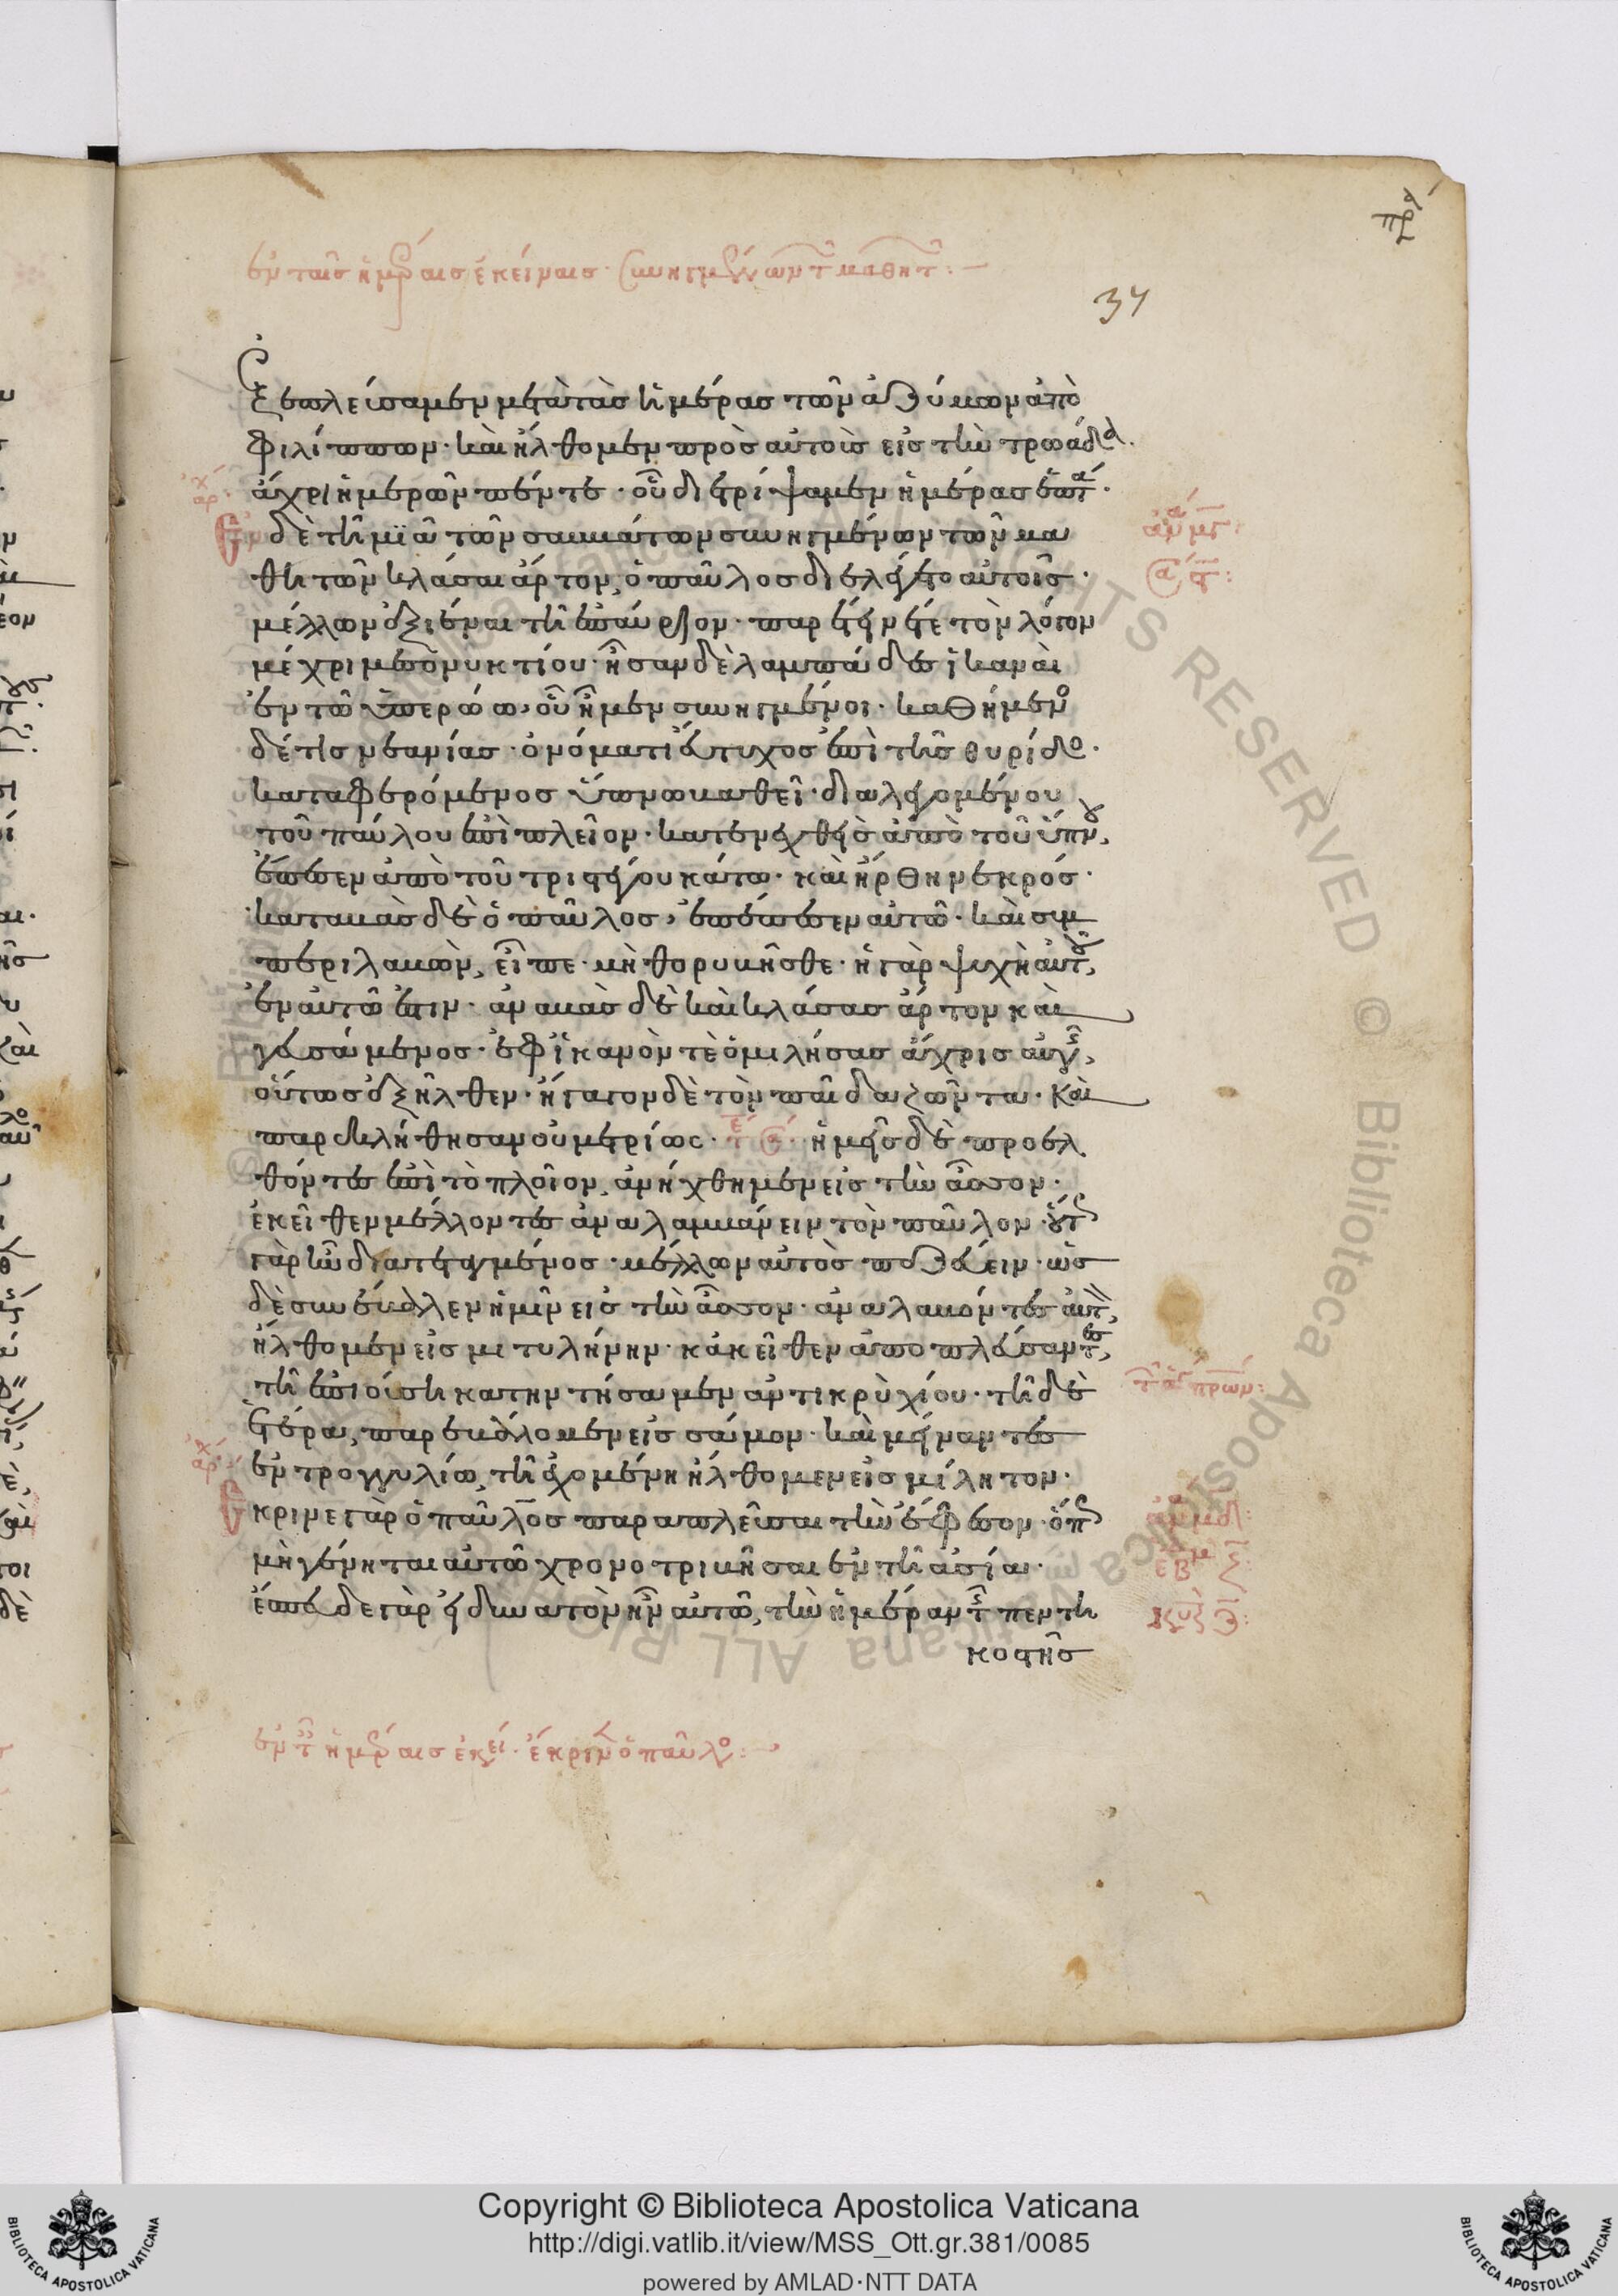 ἐν ταῖς ἡμέραις ἐκείναις· συνηγμένων τῶν μαθητῶν:
34
Ἐξεπλεύσαμεν μετὰ τὰς ἡμέρας τῶν ἀζύμων ἀπὸ
φιλίππων· καὶ ἤλθομεν πρὸς αὐτοὺς εἰς τὴν τρωάδα.
ἄχρι ἡμερῶν πέντε· οὗ διετρίψαμεν ἡμέρας ἑπτά.
ἀρχ
Ἐν δὲ τῇ μϊᾶ τῶν σαββάτων συνηγμένων τῶν μα
θητῶν κλάσαι ἄρτον, ὁ παῦλος διελέγετο αὐτοῖς·
μέλλων ἐξιέναι τῇ ἐπαύριον· παρέτεινέ τε τὸν λόγον
μέχρι μεσονυκτίου· ἦσαν δὲ λαμπάδες ἱκαναὶ
ἐν τῶ ὑπερώω, οὗ ἦμεν συνηγμένοι· καθήμενος
δέ τις νεανίας· ὀνόματι εὔτυχος ἐπὶ τῆς θυρίδος·
καταφερόμενος ὕπνω βαθεῖ· διαλεγομένου
τοῦ παύλου ἐπὶ πλεῖον· κατενεχθεὶς ἀπὸ τοῦ ὕπνου,
ἔπεσεν ἀπὸ τοῦ τριστέγου κάτω· καὶ ἤρθη νεκρός·
καταβὰς δὲ ὁ παῦλος, ἐπέπεσεν αὐτῶ· καὶ συμ
περιλαβὼν, εἶπε· μὴ θορυβῆσθε· ἡ γὰρ ψυχὴ αὐτοῦ,
ἐν αὐτῶ ἐστιν· ἀναβὰς δὲ καὶ κλάσας ἄρτον καὶ
γευσάμενος· ἐφ ἱκανὸν τε ὁμιλήσας ἄχρις αὐγῆς,
οὕτως ἐξῆλθεν· ἤγαγον δὲ τὸν παῖδα ζῶντα· καὶ
παρεκλήθησαν οὐ μετρίως· ἡμεῖς δὲ προελ
θόντες ἐπὶ τὸ πλοῖον, ἀνήχθημεν εἰς τὴν ἆσσον·
ἐκεῖθεν μέλλοντες ἀναλαμβάνειν τὸν παῦλον· οὕτως
γὰρ ἦν διατεταγμένος· μέλλων αὐτὸς πεζεύειν· ὡς
δὲ συνέβαλεν ἡμῖν εἰς τὴν ἆσσον· ἀναλαβόντες αὐτὸν,
ἤλθομεν εἰς μιτυλήνην· κἀκεῖθεν ἀποπλεύσαντες,
τῇ ἐπιούσῃ κατηντήσαμεν ἀντικρὺ χίου· τῇ δὲ
ἑτέρα, παρεβάλομεν εἰς σάμον· καὶ μείναντες
ἐν τρογγυλίω, τῇ ἐχομένη ἤλθομεν εἰς μίλητον·
ἀρχ
Ἔκρινε γὰρ ὁ παῦλος παραπλεῦσαι τὴν ἔφεσον· ὅπως
μὴ γένηται αὐτῶ χρονοτριβῆσαι ἐν τῇ ἀσία·
ἔσπευδε γὰρ εἰ δυνατὸν ἦν αὐτῶ, τὴν ἡμέραν τῆς πεντη
κοστῆς
ἐν ταῖς ἡμέραις ἐκεί· ἔκρινεν ὁ παῦλος:
Copyright © Biblioteca Apostolica Vaticana
http://digi.vatlib.it/view/MSS_Ott.gr.381/0085
powered by AMLAD·NTT DATA